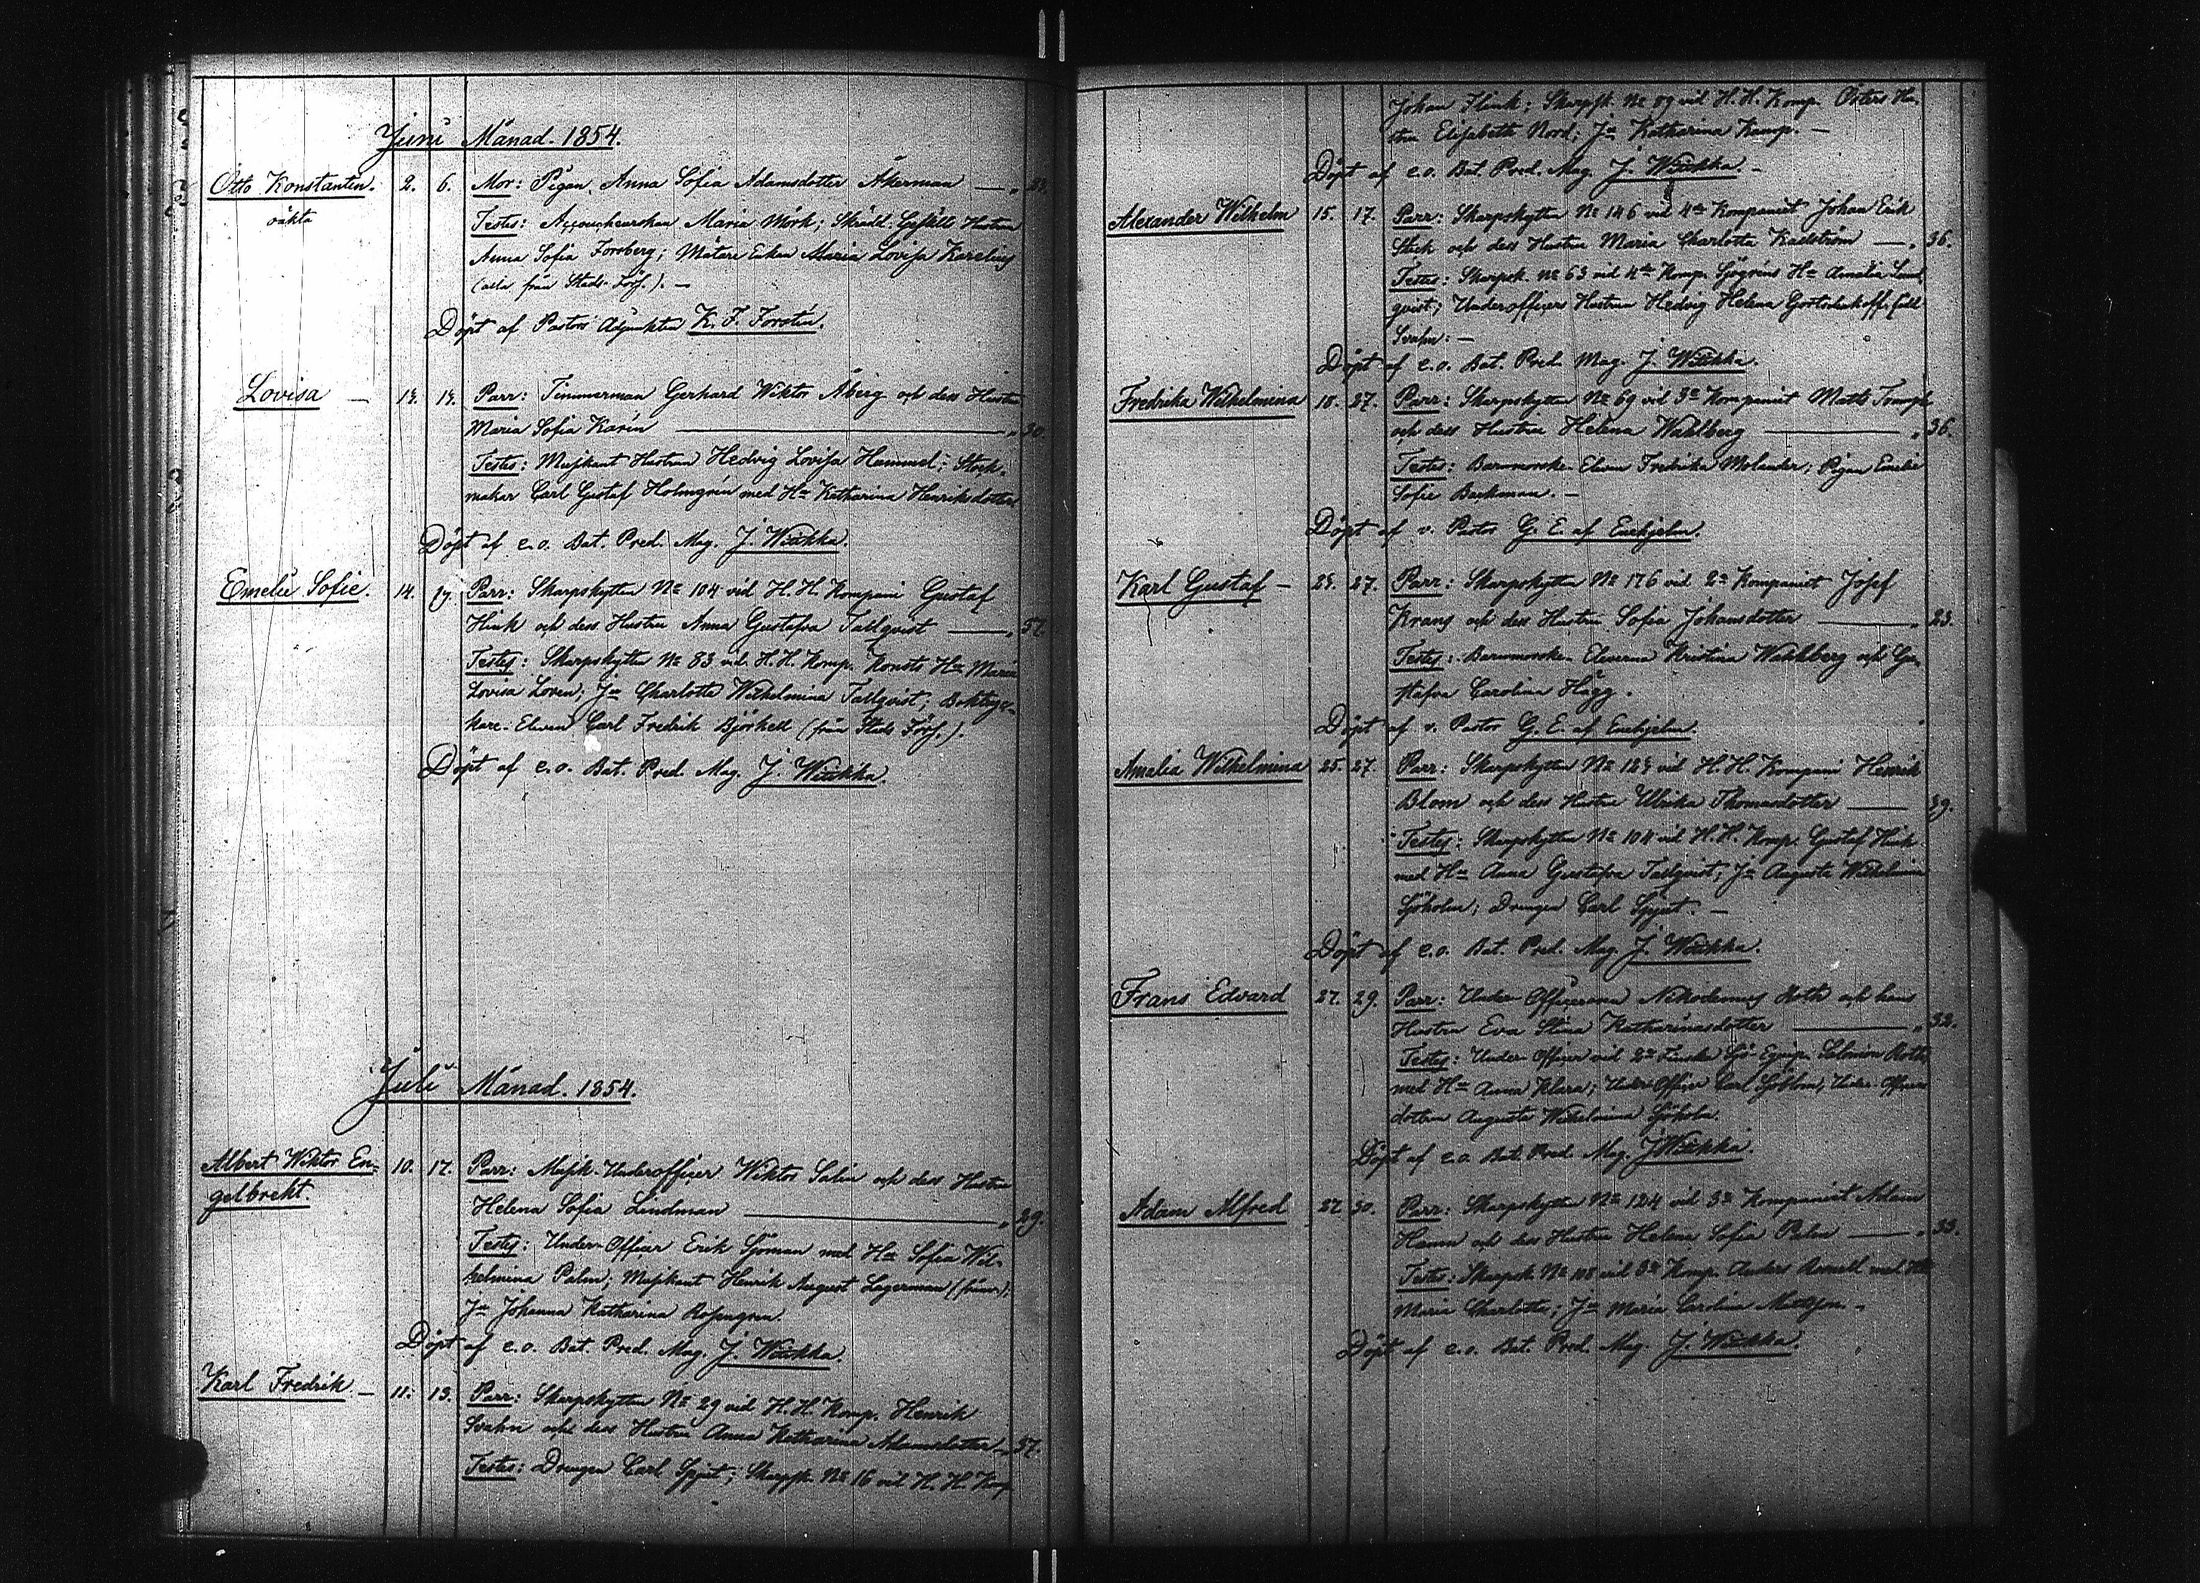 Juni Månad. 1854.
Otto Konstantin. 2. 6. Mor: Pigan Anna Sofia Adamsdotter Åkerman — „ 23.
oäkta
Testes: Accoucheurskan Maria Mörk; Skrädd. Gesälls Hustrun
Anna Sofia Forsberg; Mätare Enkan Maria Lovisa Karelius
(alla från Stads-Förs.). —
Döpt af Pastors Adjunkten K. F. Forstén.
Lovisa — 13. 13. Parr: Timmerman Gerhard Wiktor Åberg och dess Hustru
Maria Sofia Karén — „ 30.
Testes: Musikant Hustrun Hedvig Lovisa Hammel; Stock-
makar Carl Gustaf Holmgrén med Hu Katharina Henriksdotter
Döpt af e.o. Bat. Pred. Mag. J. Wiukka.
Emelie Sofie. 14. 17. Parr: Skarpskytten No 104 vid H. H. Kompani Gustaf
Hink och dess Hustru Anna Gustafva Tallqvist — „ 37.
Testes: Skarpskytten No 83 vid H. H. Komp. Hu Maria
Lovisa Loven; Jn Charlotta Wilhelmina Tallqvist; Boktryc-
kare-Eleven Carl Fredrik Björkell (från Stads Förs.).
Döpt af e.o. Bat. Pred. Mag. J. Wiukka.
Juli Månad. 1854.
Albert Wiktor En- 10. 17. Parr: Musik-Underofficer Wiktor Salin och dess Hustru
gelbrekt. Helena Sofia Lindman — „ 29.
Testes: Under-Officer Erik Sjöman med Hu Sofia Wil-
helmina Palm; Musikant Henrik August Lagerman (frånv.);
Jn Johanna Katharina Rosengren.
Döpt af e.o. Bat. Pred. Mag. J. Wiukka.
Karl Fredrik. — 11. 13. Parr: Skarpskytten No 29 vid H. H. Komp. Henrik
Svahn och dess Hustru Anna Katharina Adamsdotter — „ 37.
Testes: Drengen Carl Spjut; Skarpsk. No 16 vid H. H. Komp.
Johan Flink; Skarpsk. No 89 vid H. H. Komp. Österr Hu-
stru Elisabeth Nord; Jn Katharina Kamp. —
Döpt af e.o. Bat. Pred. Mag. J. Wiukka. —
Alexander Wilhelm 15. 17. Parr: Skarpskytten No 146 vid 4de Kompaniet Johan Erik
Stek och dess Hustru Maria Charlotta — „ 36.
Testes: Skarpsk. No 63 vid 4de Komp. Sjögréns Hu Amalia
qvist; Underofficers Hustrun Hedvig Helena född
Svahn: —
Döpt af e.o. Bat. Pred. Mag. J. Wiukka.
Fredrika Wilhelmina 18. 27. Parr: Skarpskytten No 69 vid 3e Kompaniet Matts
och dess Hustru Helena Wahlberg — „ 36.
Testes: Barnmorske-Eleven Fredrika Molander; Pigan Emelie
Sofie Backman. —
Döpt af v. Pastor G. E. af Enehjelm.
Karl Gustaf — 23. 27. Parr: Skarpskytten No 176 vid 2a Kompaniet Josef
Krans och dess Hustru Sofia Johansdotter — „ 23.
Testes: Barnmorske-Eleverna Kristina Wahlberg och Gu-
stafva Carolina Hägg.
Döpt af v. Pastor G. E. af Enehjelm.
Amalia Wilhelmina 25. 27. Parr: Skarpskytten No 123 vid H. H. Kompani Henrik
Blom och dess Hustru Ulrika Thomasdotter — 39.
Testes: Skarpskytten No 104 vid H. H. Komp. Gustaf Hink
med Hu Anna Gustafva Tallqvist; Jn Augusta Wilhelmina
Sjöholm; Drengen Carl Spjut. —
Döpt af e.o. Bat. Pred. Mag. J. Wiukka.
Frans Edvard 27. 29. Parr: Under-Officeraren Nikodemus Roth och hans
Hustru Eva Stina Katharinasdotter — „ 32.
Testes: Under-Officer vid 2a Finska Sjö-Equip. Salmon Roth
med Hu Anna Klara; Under-Officer Carl Sjöblom, Under-Officers
dottern Augusta Wilhelmina Sjöholm.
Döpt af e.o. Bat. Pred. Mag. J. Wiukka.
Adam Alfred 27. 30. Parr: Skarpskytten No 124 vid 3e Kompaniet Adam
och dess Hustru Helena Sofia Palm — „ 33.
Testes: Skarpsk. No 108 vid 3e Komp. Anders med Hu
Maria Charlotta; Jn Maria Carolina Mattsson. —
Döpt af e.o. Bat. Pred. Mag. J. Wiukka.